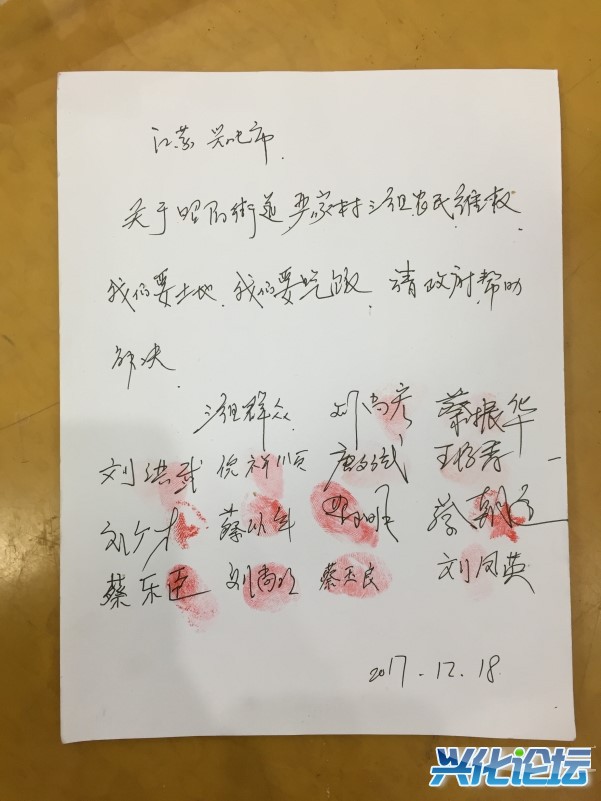 江苏 兴化市.
关于昭阳街道 严家村 三组农民维权
我们要土地, 我们要吃饭, 请政府帮助
解决.
三组群众 刘尚彦 蔡振华
刘洪武 倪祥顺
蔡
蔡乐 刘尚 蔡 良 刘凤英
2017.12.18
兴化论坛